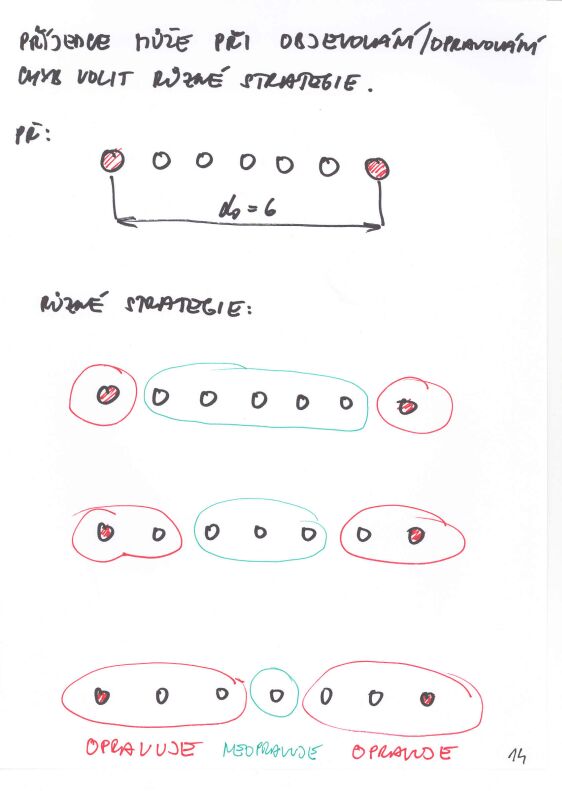 PŘÍJEMCE MŮŽE PŘI OBJEVOVÁNÍ/OPRAVOVÁNÍ
CHYB VOLIT RŮZNÉ STRATEGIE.
PŘ:
d₀ = 6
RŮZNÉ STRATEGIE:
OPRAVUJE NEOPRAVUJE OPRAVUJE
14